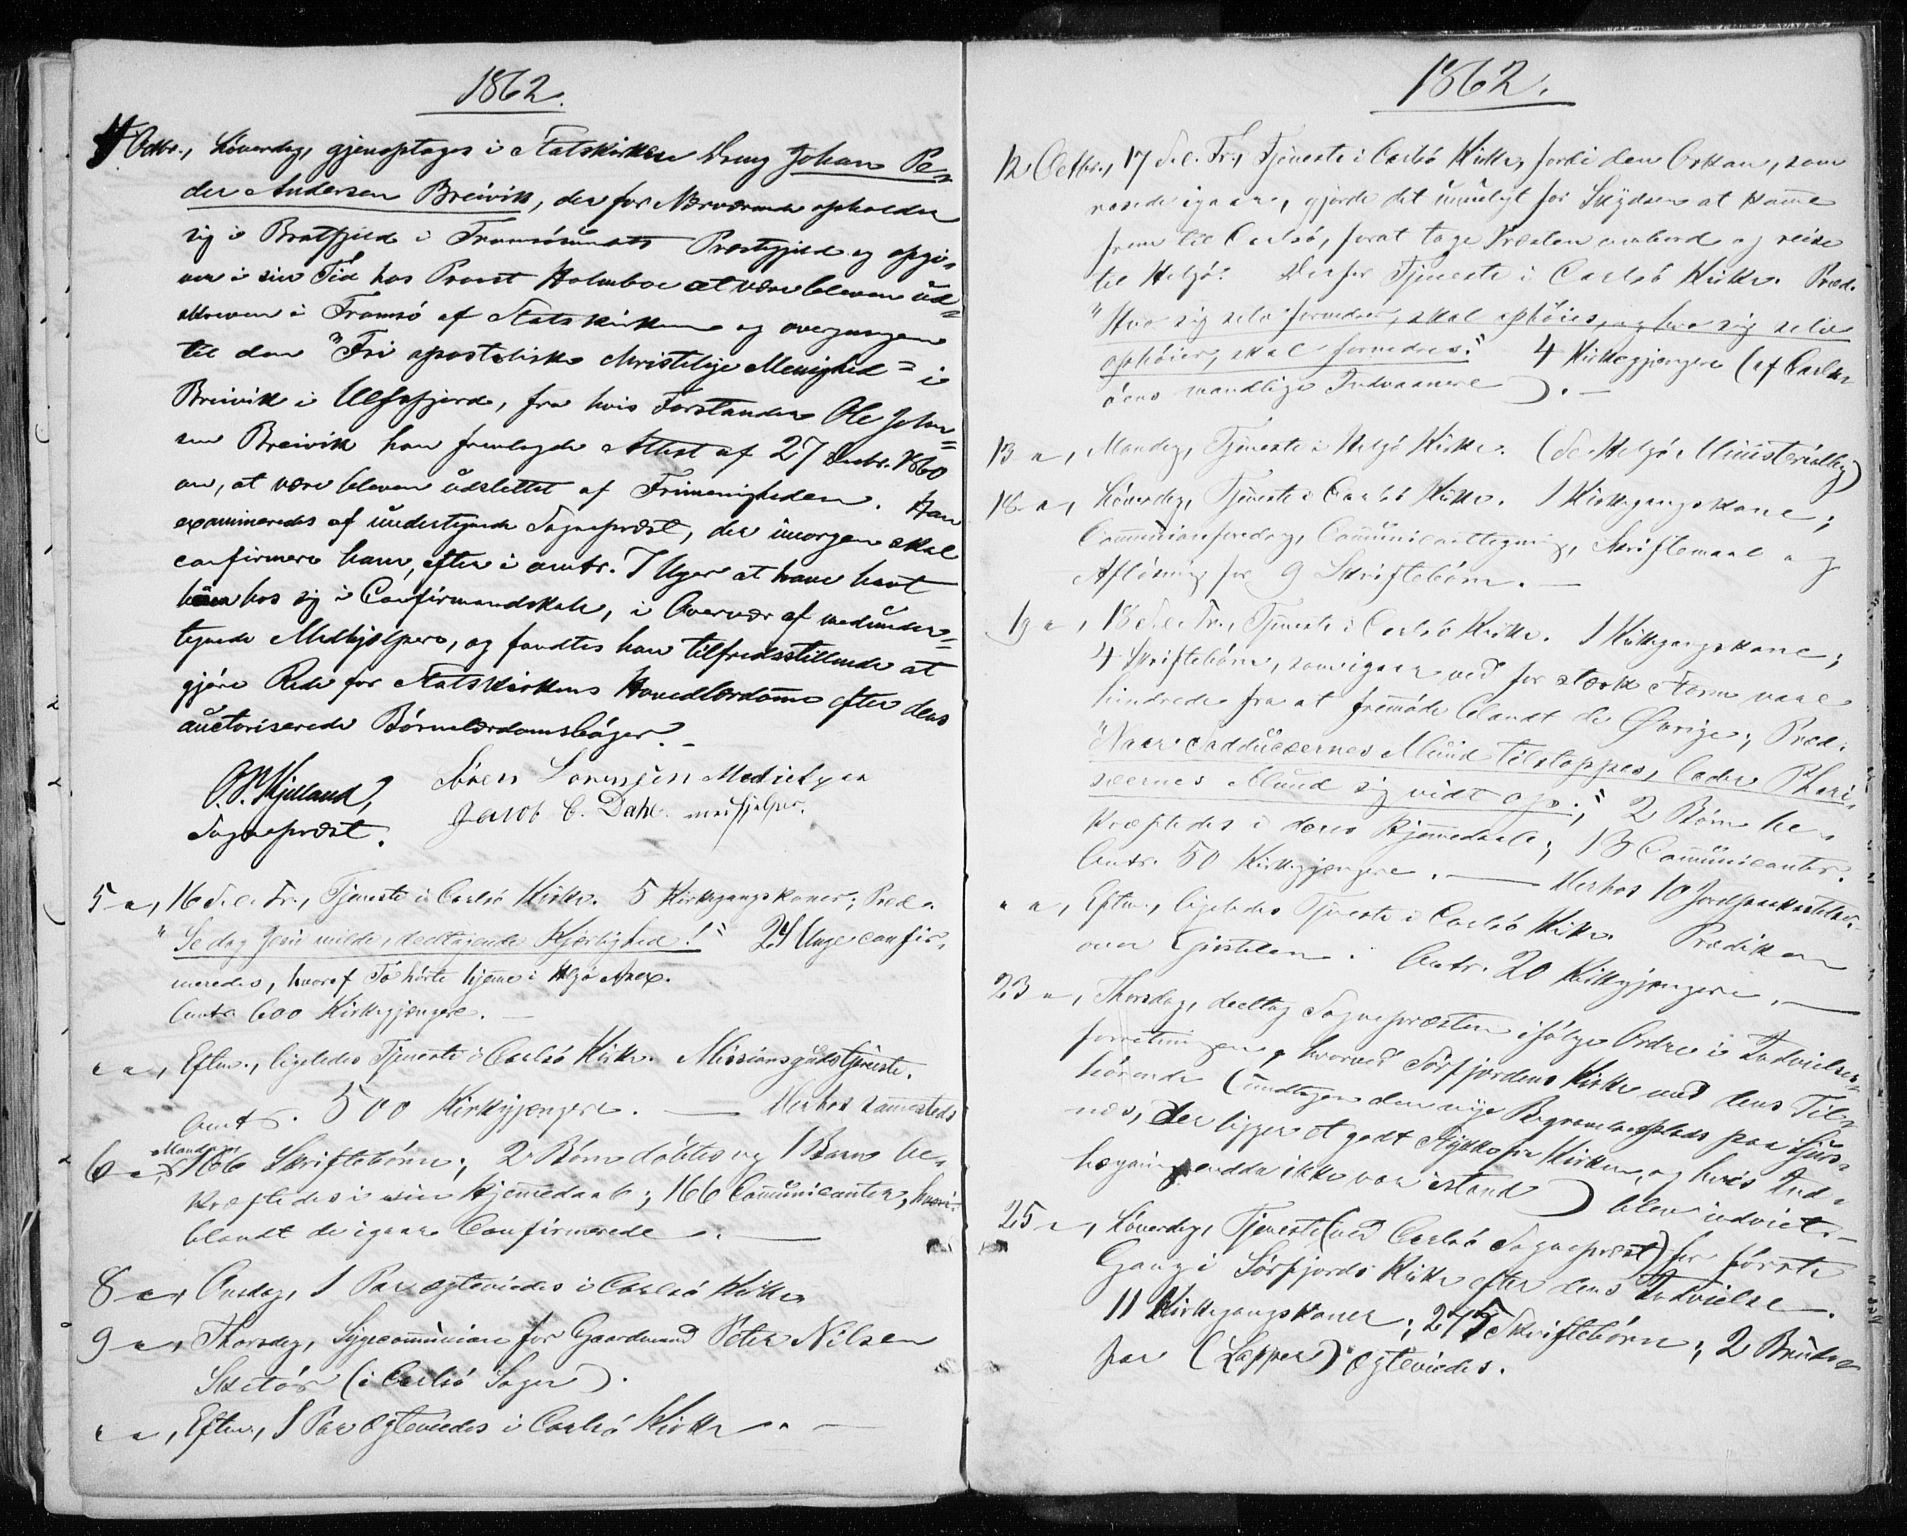 1862.
4 Octbr., Løverdag, gjenoptoges i Statskirken Dreng Johan Pe-
der Andersen Breivik, der for Nærværende opholder
sig i Bratfjeld i Tromsøsundets Præstegjeld og opgi-
ver i sin Tid hos Provst Holmboe at være bleven ud-
skreven i Tromsø af Statskirken og overgangen
til den "Fri apostoliske christelige Menighed" i
Breivik i Ulfsfjord, fra hvis Forstander Ole John-
sen Breivik han fremlagde Attest af 27 1860
om, at være bleven udslettet af Frimenigheden. Han
examineredes af undertegnede Sognepræst, der imorgen skal
confirmere ham, efter i omtr. 7 Uger at have havt
ham hos sig i Confirmandskole, i Overvær af medunder-
tegnede Medhjelpere, og fandtes han tilfredsstillende at
gjøre Rede for Statskirkens Hovedlærdomme efter dens
auctoriserede Børnelærdomsbøger. -
O. S. Kjelland, Sören Lorenssen Medhielper
Sognepræst. Jacob C. Dahl medhjelper.
5 - , 16 S. e. Tr., Tjeneste i Carlsø Kirke. 5 Kirkegangskoner; Præd.
"Se dog Jesu milde, deeltagende Kjærlighed!" 24 Unge confir-
meredes, hvoraf To hørte hjemme i Helgø Anex.
Omtr. 600 Kirkegjængere. -
" - , Efterm., ligeledes Tjeneste i Carlsø Kirke. Missionsgudstjeneste.
Omtr. 500 Kirkegjængere. — Herhos sammesteds
6 - , Mandag 166 Skriftebörn; 2 Börn döbtes og 1 Barn be-
kræftedes i sin Hjemmedaab; 166 Communicanter, hvori-
blandt de igaar Confirmerede. —
8 - , Onsdag, 1 Par ægteviedes i Carlsø Kirke
9 - , Thorsdag, Sygecommunion for Gaardmand Peter Nilsen
Sketør (i Carlsø Sogn).
" - , Efterm., 1 Par ægteviedes i Carlsø Kirke. —
1862.
12 Octbr., 17 S. e. Tr., Tjeneste i Carlsø Kirke, fordi den Orkan, som
rasede igaar, gjorde det umuligt for Skydsen at komme
frem til Carlsø, forat tage Præsten ombord og reise
til Helgø. Derfor Tjeneste i Carlsø Kirke. Præd.
"Hvo sig selv fornedrer, skal ophøies, og hvo sig selv
ophøier, skal fornedres." 4 Kirkegjængere (af Carls-
øens mandlige Indvaanere). -
13 - , Mandag, Tjeneste i Helgø Kirke. (Se Helgø Ministerialbog)
18 - , Løverdag, Tjeneste i Carlsø Kirke. 1 Kirkegangskone;
Communionforedrag, Communicanttegning, Skriftemaal og
Afløsning for 9 Skriftebørn. -
19 - , 18 S. e. Tr., Tjeneste i Carlsø Kirke. 1 Kirkegangskone;
4 Skriftebørn, som igaar ved for stærk Storm vare
hindrede fra at fremmøde blandt de Øvrige; Præd.
"Naar Sadducæernes Mund tilstoppes, lader Phari-
sæernes Mund sig vidt op."; 2 Børn be-
kræftedes i deres Hjemmedaab; 13 Communicanter.
Omtr. 50 Kirkegjængere. — Herhos 10 Jordpaakastelser.
" - , Efterm., ligeledes Tjeneste i Carlsø Kirke. Prædiken
over Epistelen. Omtr. 20 Kirkegjængere. —
23 - , Thorsdag, deeltog Sognepræsten ifølge Ordre i Indvielses-
forretningen, hvorved Sørfjordens Kirke med dens Til-
hørende (undtagen den nye Begravelsesplads paa
næs, der ligger et godt Stykke fra Kirken, og hvis Ind-
hægning endda ikke var istand) blev indviet. -
25 - , Løverdag, Tjeneste (ved Carlsø Sognepræst) for første
Gang i Sørfjords Kirke efter dens Indvielse.
11 Kirkegangskoner; 275 Skriftebørn; 2 Brude-
par (Lapper) ægteviedes.